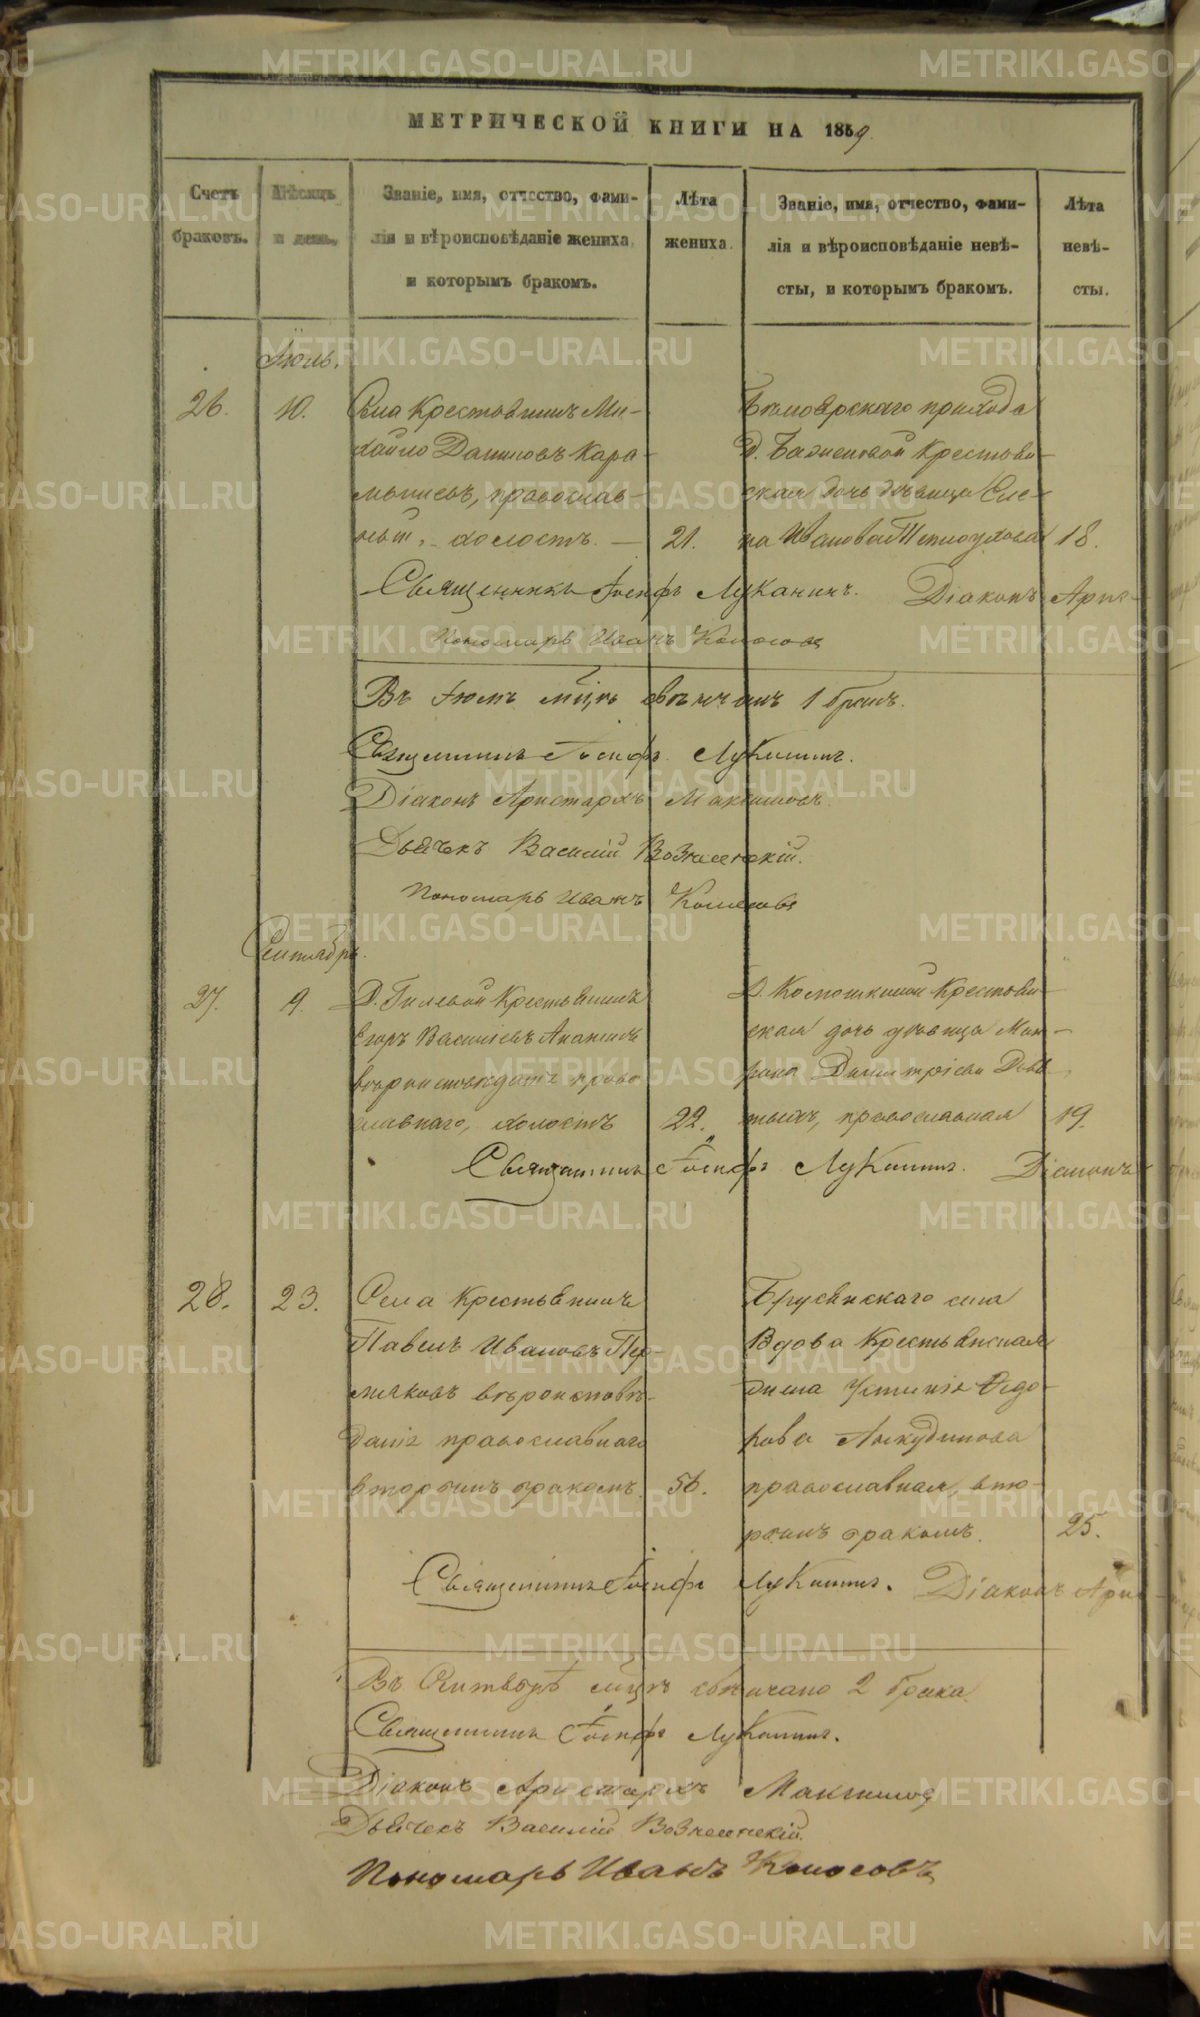 МЕТРИЧЕСКОЙ КНИГИ НА 1859
Счетъ браковъ.
Мѣсяцъ и день.
Званіе, имя, отчество, фами-
лія и вѣроисповѣданіе жениха,
и которымъ бракомъ.
Лѣта
жениха.
Званіе, имя, отчество, фами-
лія и вѣроисповѣданіе невѣ-
сты, и которымъ бракомъ.
Лѣта
невѣ-
сты.
Іюль.
26. 10. Села Крестьянинъ Ми-
хайло Даниловъ Кара-
мышевъ, православ-
ный, холостъ. — 21.
Бѣлоярскаго прихода
д. Баженовой Крестьян-
ская дочь дѣвица Еле-
на Иванова Теплоухова 18.
Священникъ Іосифъ Луканинъ. Діаконъ Арис-
Пономарь Иванъ Колосовъ
Въ Іюлѣ мцѣ обвѣнчанъ 1 бракъ.
Священникъ Іосифъ Луканинъ.
Діаконъ Аристархъ Максимовъ.
Дьячекъ Василій Вознесенскій.
Пономарь Иванъ Колосовъ
Сентябрь.
27. 9. Д. Гилевой Крестьянинъ
Егоръ Василіевъ Ананьинъ
вѣроисповѣданія право
славнаго, холостъ 22.
Д. Колюткиной Крестьян-
ская дочь дѣвица Мат-
рона Димитріева Девя
тыхъ, православная 19.
Священникъ Іосифъ Луканинъ. Діаконъ
28. 23. Села Крестьянинъ
Павелъ Ивановъ Пер-
мяковъ вѣроисповѣ-
данія православнаго
вторымъ бракомъ. 56.
Брусянскаго села
Вдова Крестьянская
жена Устинія Ѳедо-
рова Анкудинова
православная, вто-
рымъ бракомъ. 25.
Священникъ Іосифъ Луканинъ. Діаконъ Арис
Въ мцѣ обвѣнчано 2 брака.
Священникъ Іосифъ Луканинъ.
Діаконъ Аристархъ Максимовъ
Дьячекъ Василій Вознесенскій.
Пономарь Иванъ Колосовъ
METRIKI.GASO-URAL.RU